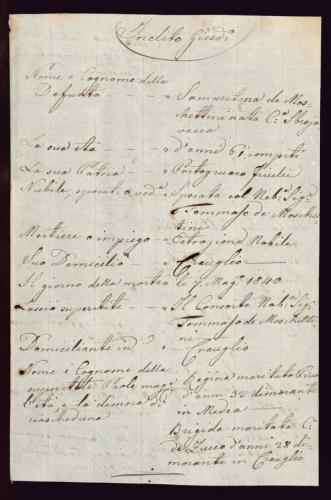 Inclito Giud.º
Nome e Cognome della
Defunta - - - " Samaritana de Mos-
chettini nata C.ª Sbroja
vacca
La sua età - - - " d'anni 61 compiti
La sua Patria - " Portogruaro Friuli
Nubile, sposat. o ved.ª " Sposata col Nob.e Sig.r
Tommaso de Moschet-
tini
Mestiere o impiego - " Estrazione Nobile
Suo Domicilio " Crauglio
Il giorno della morte " li 7 Mag.º 1840
Lascio superstite - " Il Consorte Nob.e Sig.r
Tommaso de Moschetti-
ni
Domiciliante in " Crauglio
Nome e Cognome della
superstite Prole mag-
l'età e la dimora di
ciascheduno
Regina maritata
d'anni 32 dimorante
in Medea
Brigida maritata C.
de Zucco d'anni 28 di-
morante in Crauglio